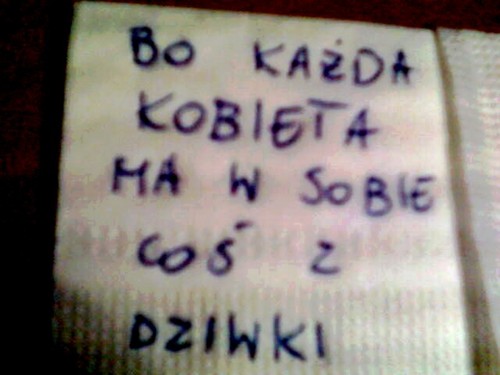 BO KAŻDA
KOBIETA
MA W SOBIE
COŚ Z
DZIWKI